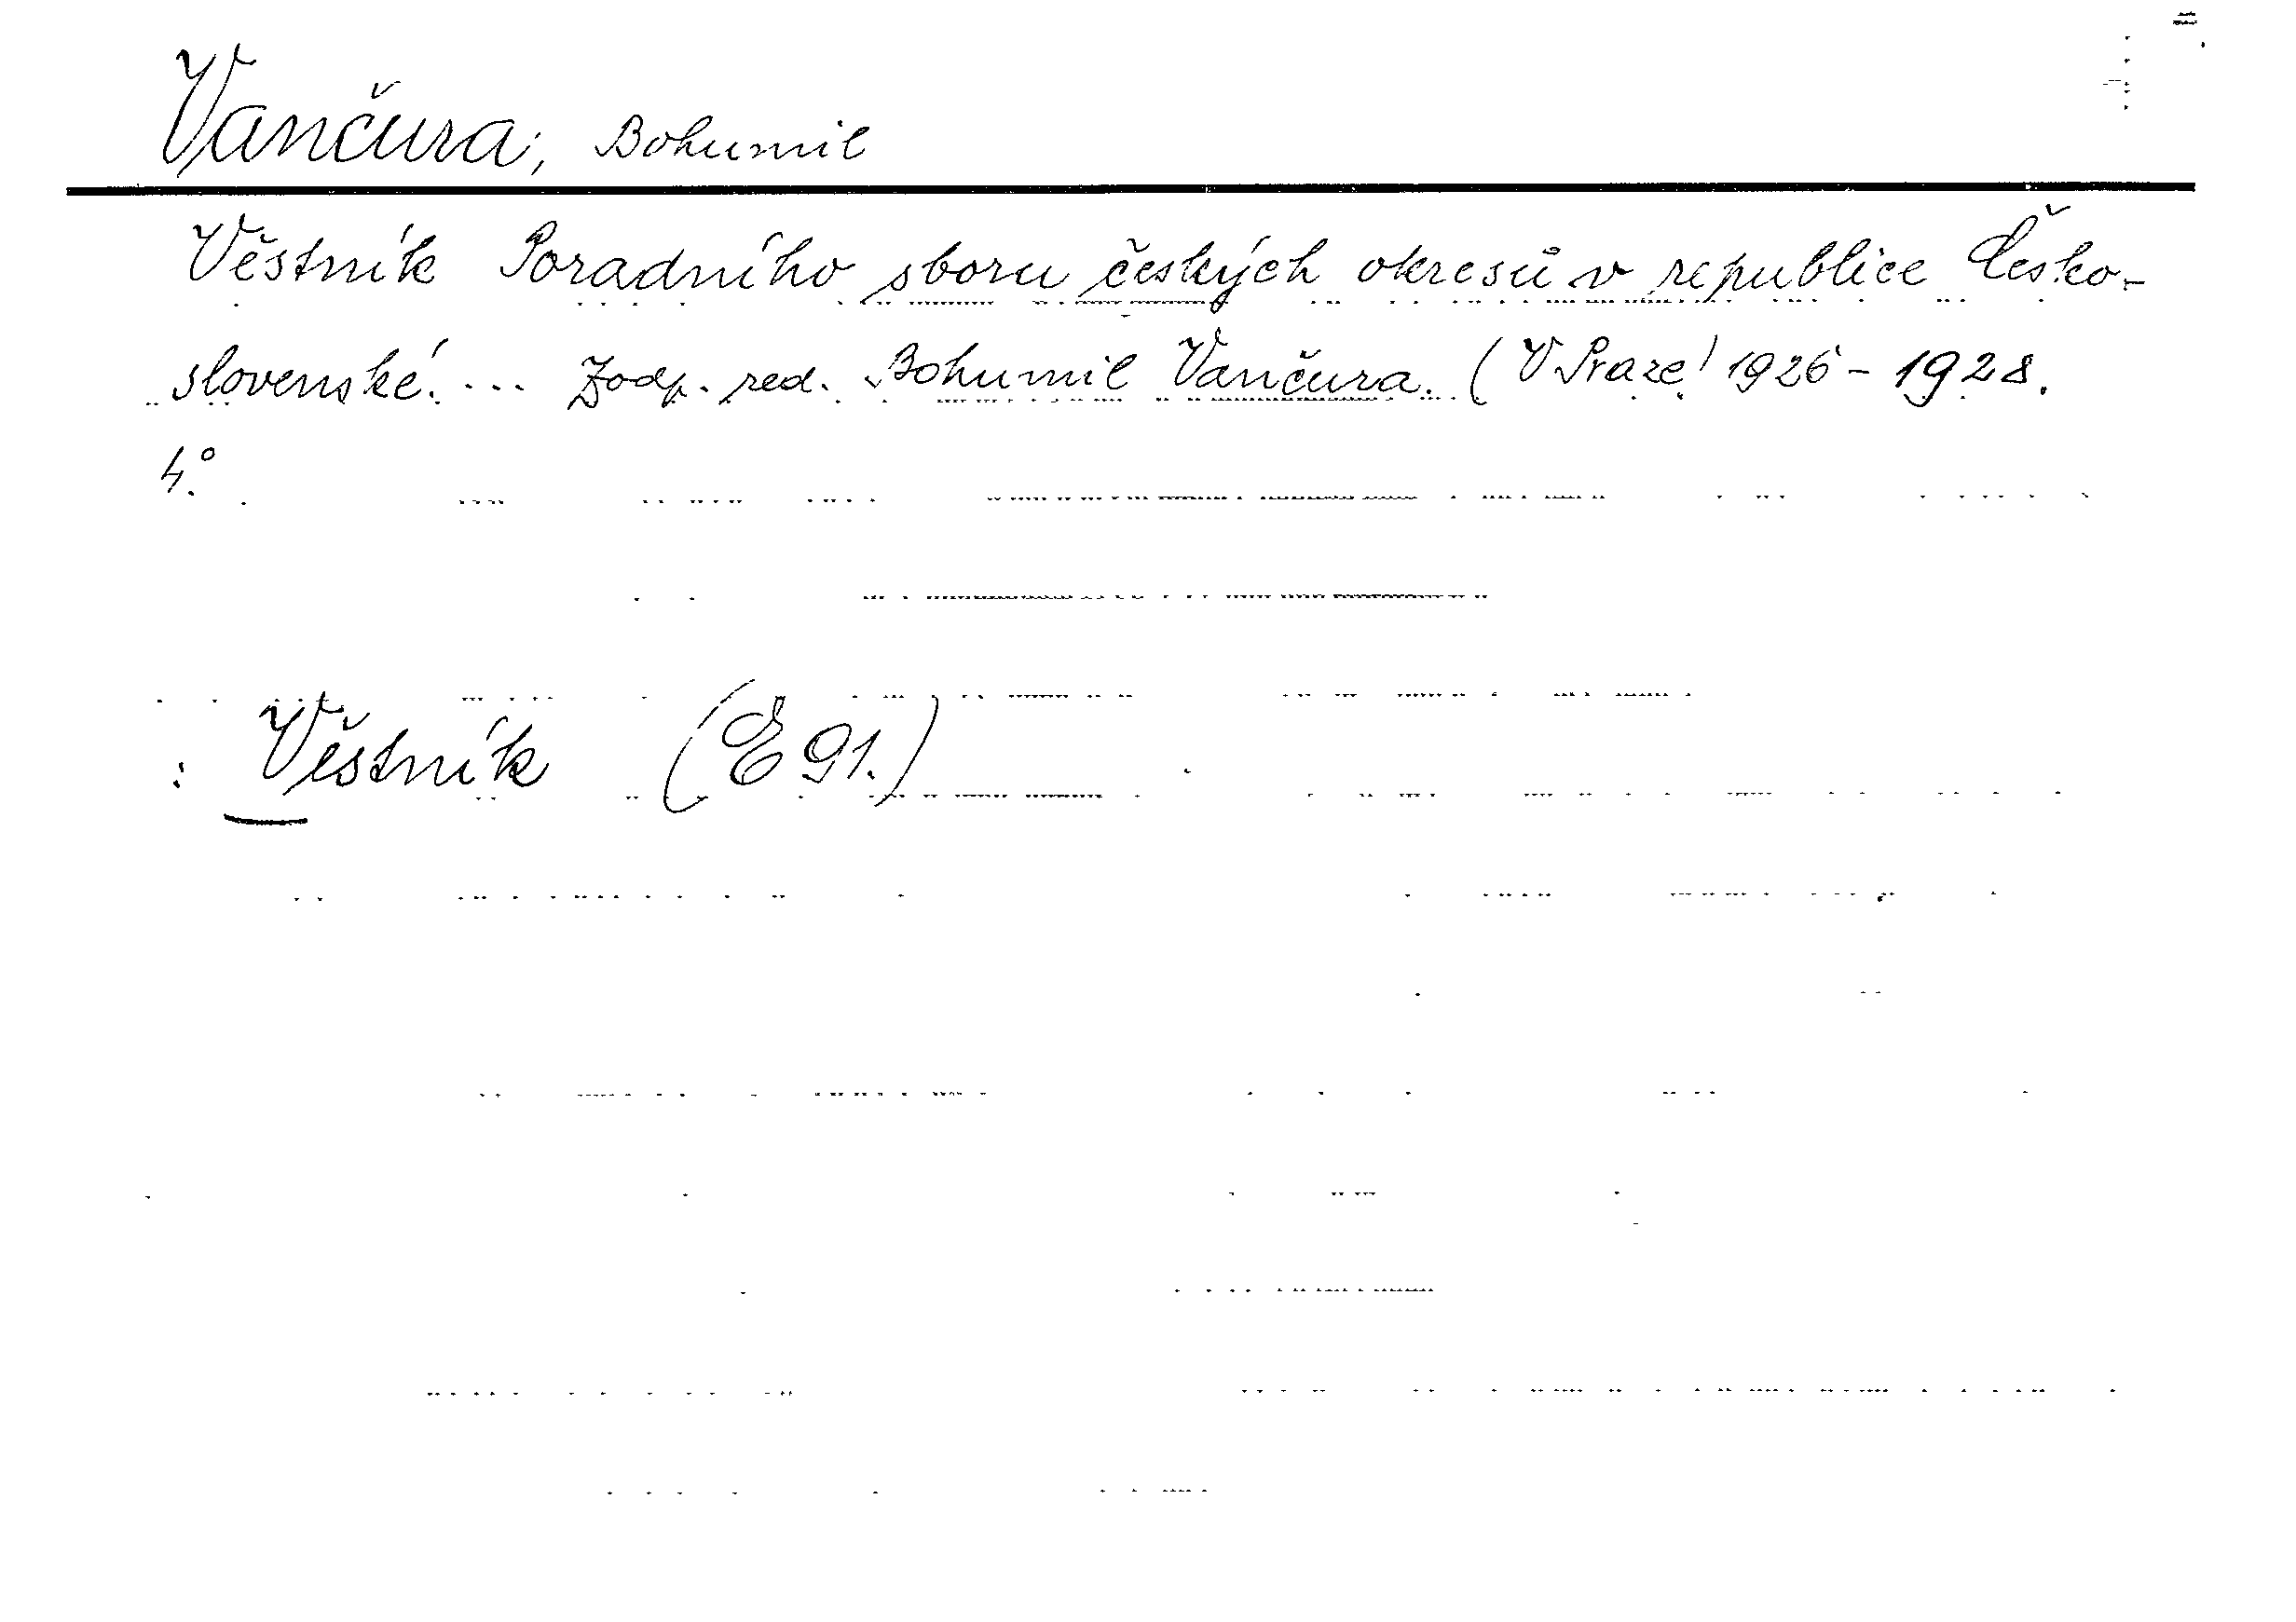 Vančura, Bohumil
Věstník Poradního sboru českých okresů v republice Česko-
slovenské. ... Zodp. red. Bohumil Vančura. (V Praze) 1926 - 1928.
4°.
: Věstník (E 91.)